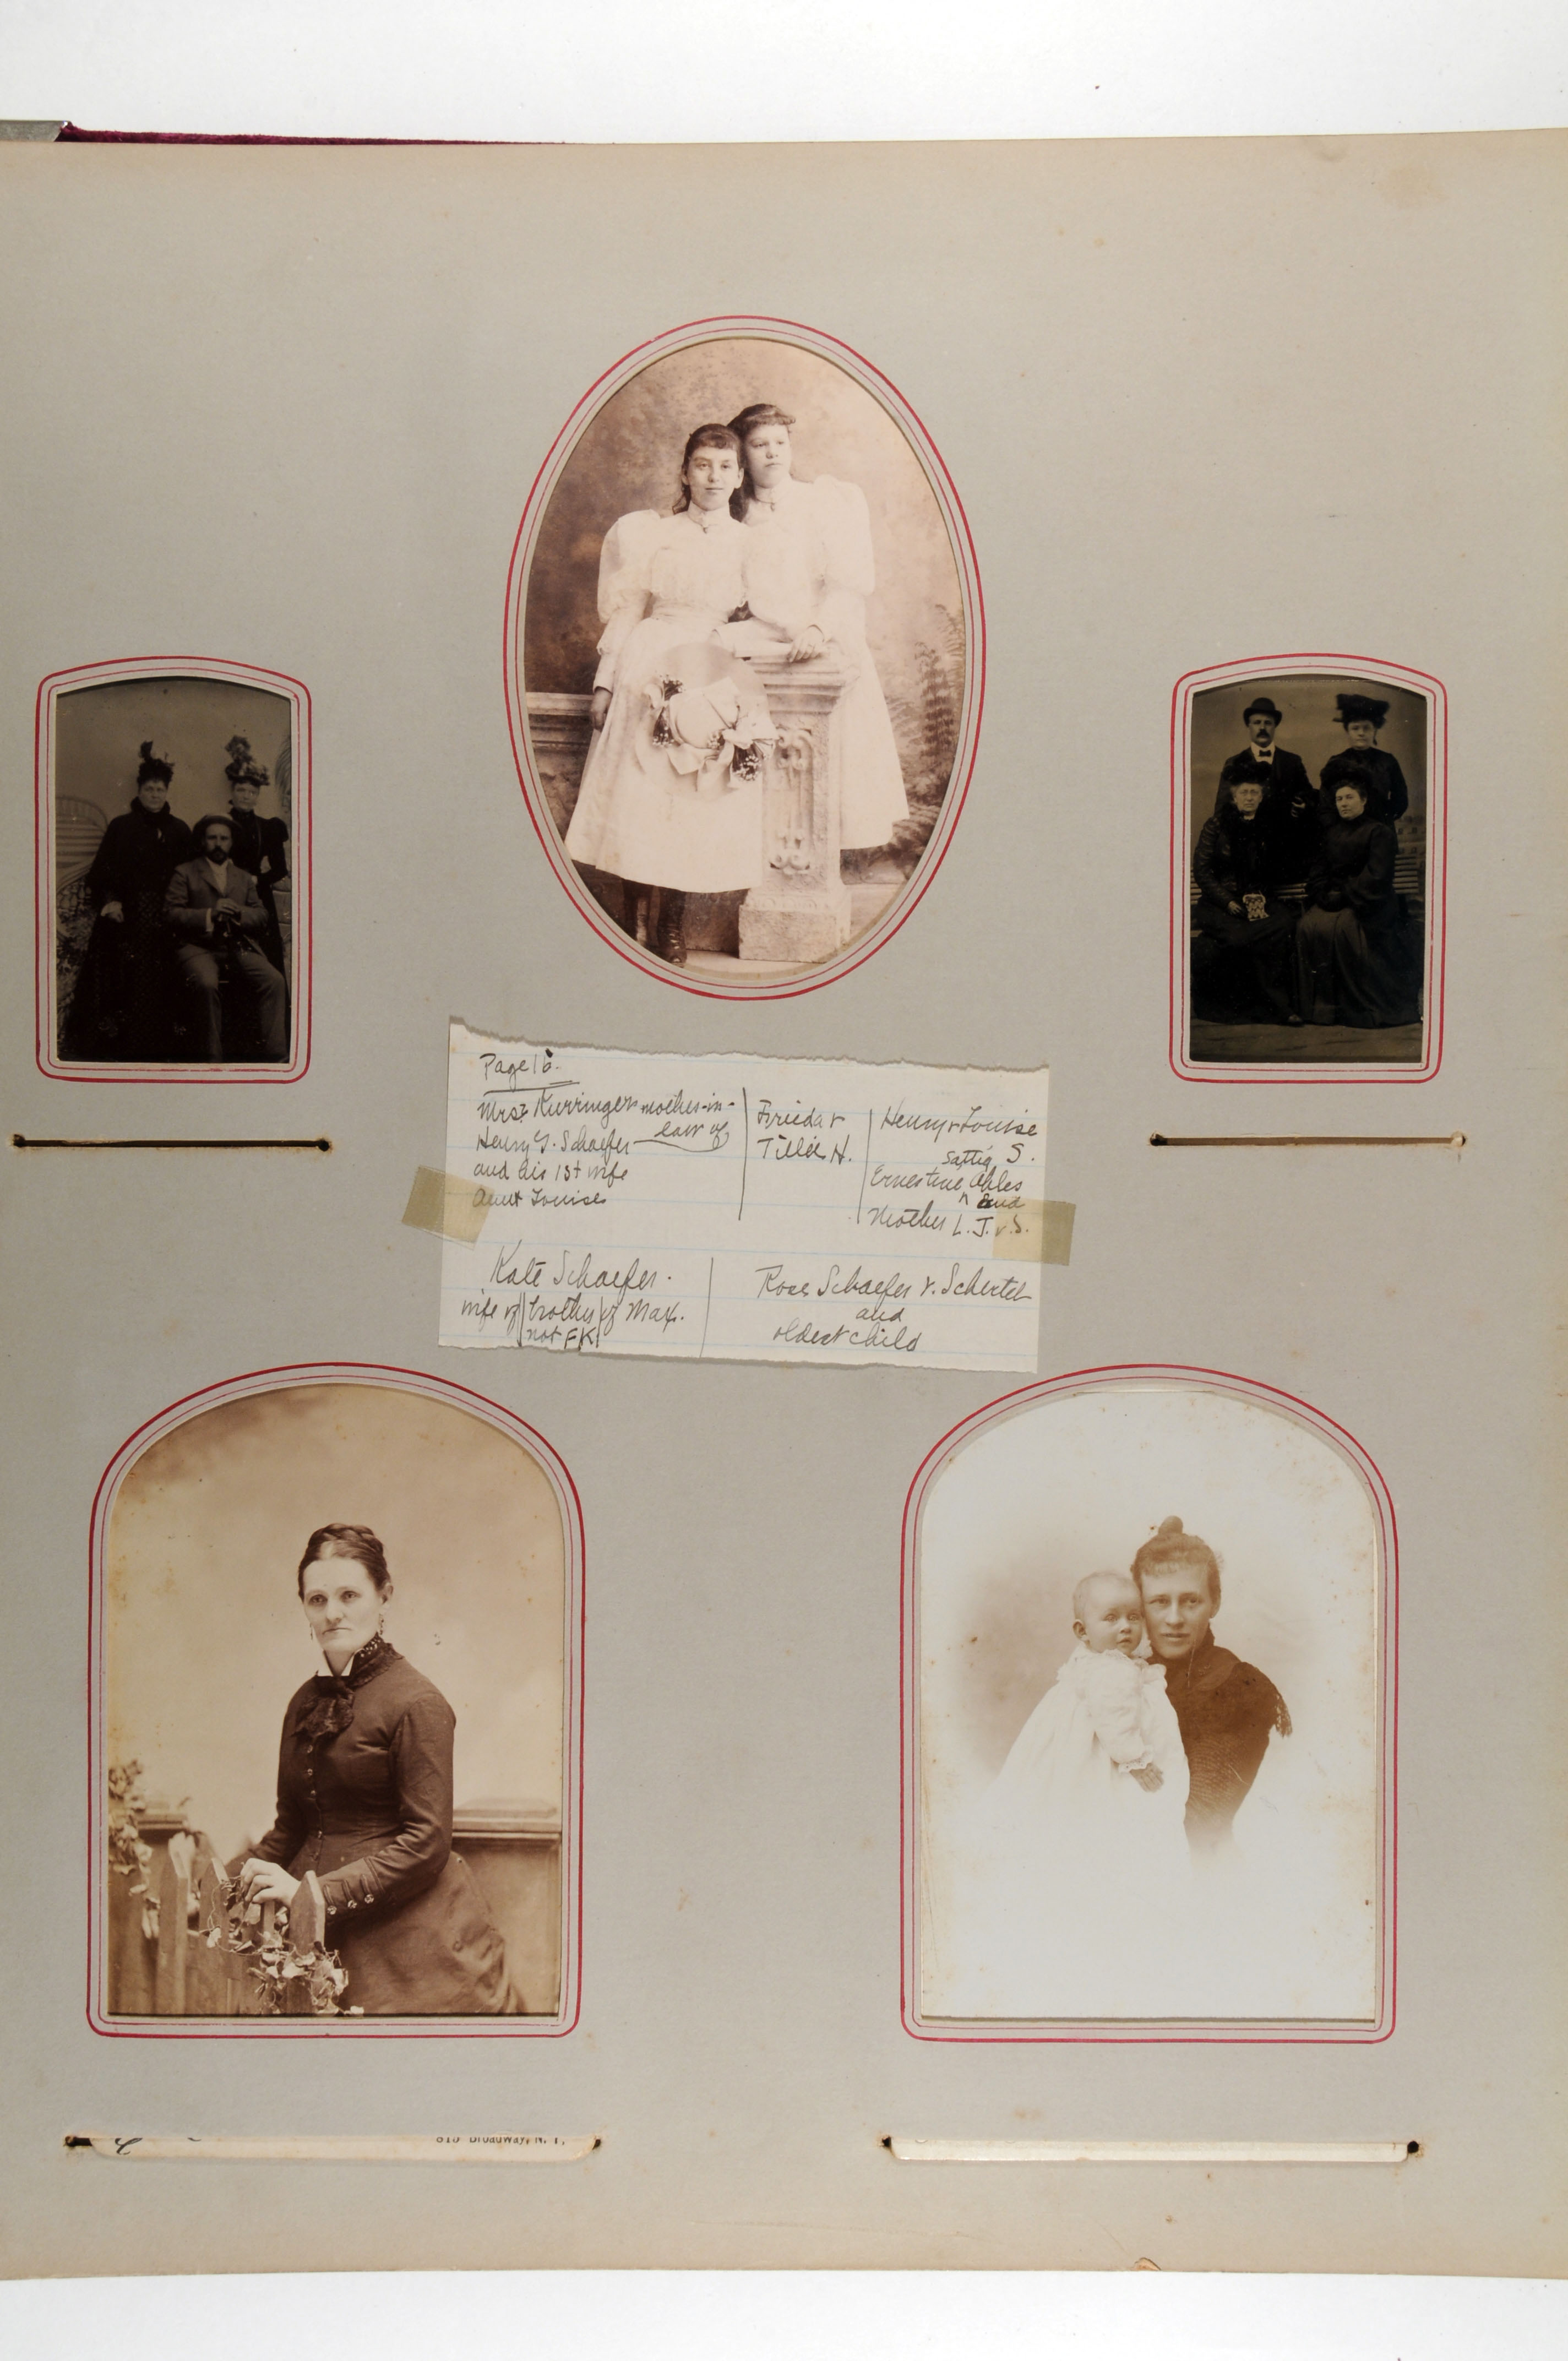 Page 16.
Mrs. Kurringer mother-in-
law of
Henry G. Schaefer
and his 1st wife
Aunt Louise
Frieda &
Tillie H.
Henry & Louise
S.
Sattig
Ernestine ^ Ahles
and
Mother L. J. v. S.
Kate Schaefer.
wife of brother of Max.
not FK
Rose Schaefer v. Schertel
and
oldest child
819 Broadway, N. Y.